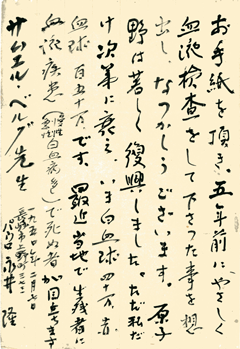 お手紙を頂き、五年前にやさしく
血液検査をして下さった事を想
出し、なつかしうございます。原子
野は著しく復興しました。ただ私だ
け次第に衰え、いま白血球四十万、赤
血球百五十万です。最近当地で生残者に
血液疾患(白血病)で死ぬ者が
一九五〇年二月七日
長崎市上野町
パウロ永井 隆
サムエル・ベルグ先生